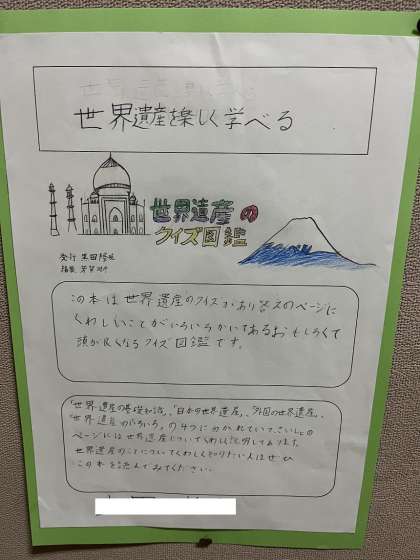 世界遺産を楽しく学べる
世界遺産の
クイズ図鑑
発行
編集
この本は世界遺産のクイズがあり答えのページに
くわしいことがいろいろかいてあるおもしろくて
頭が良くなるクイズ図鑑です。
「世界遺産の基礎知識」、「日本の世界遺産」、「外国の世界遺産」、
「世界遺産のいろいろ」の4つに分かれていてさいしょの
ページには世界遺産についてくわしく説明してあります。
世界遺産のことについてくわしくしりたい人はぜひ
この本を読んでみてください。